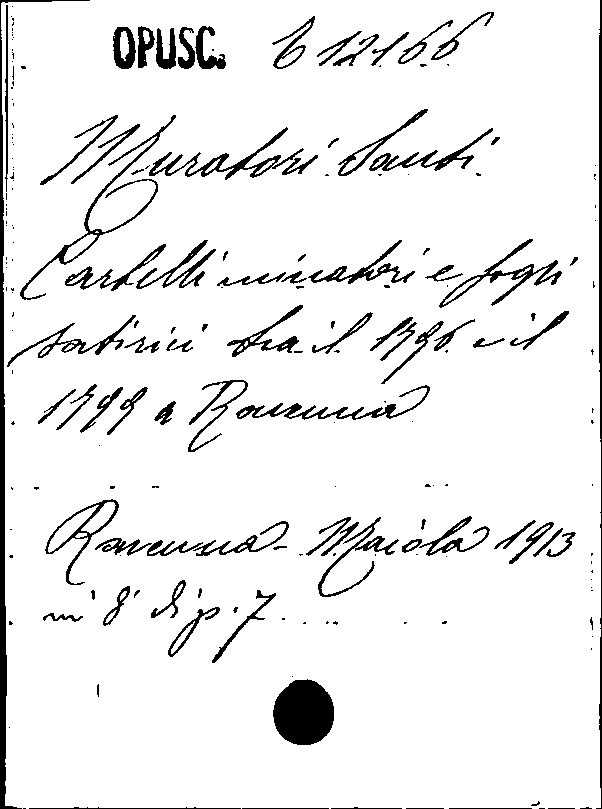 OPUSC. B 12166
Muratori Santi
Cartelli minatori e fogli
satirici tra il 1796 e il
1799 a Ravenna
Ravenna - Maiola 1913
in 8° di p. 7